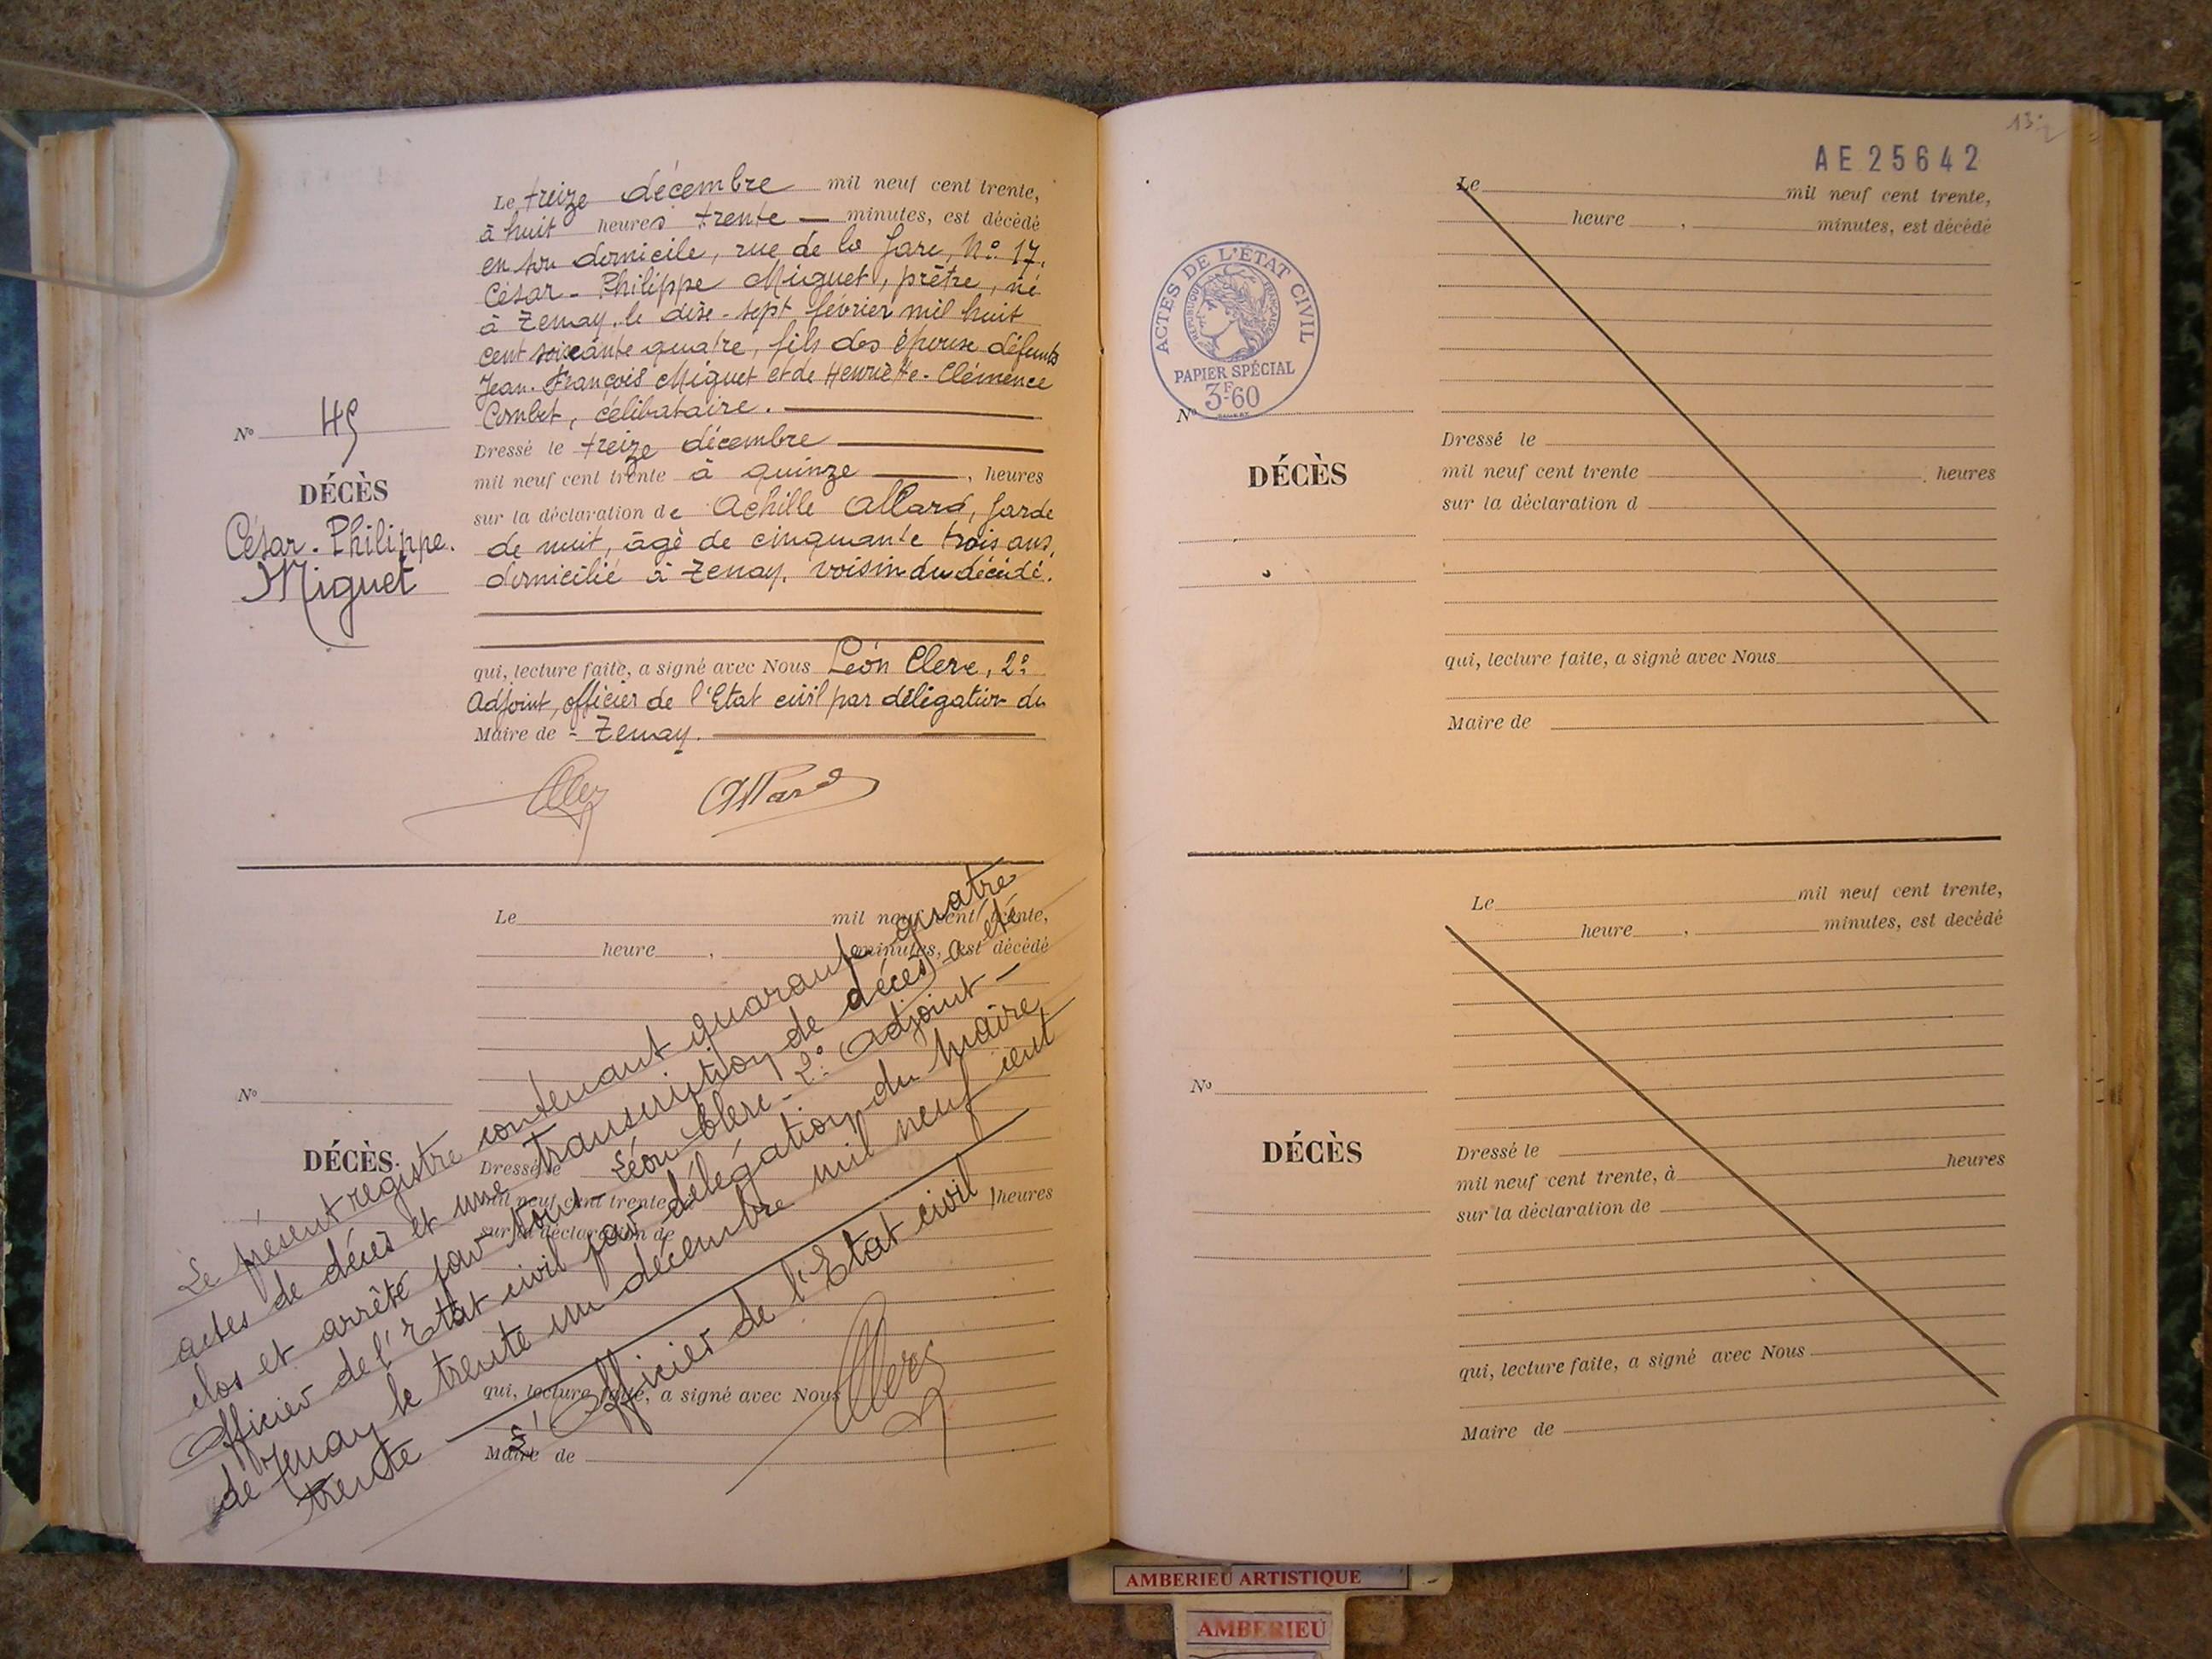 Le treize décembre mil neuf cent trente,
à huit heures trente — minutes, est décédé
en son domicile, rue de la Gare, No. 17.
César-Philippe Miguet, prêtre, né
à Tenay, le dixe-sept février mil huit
cent soixante quatre, fils des épouse défunts
Jean-François Miguet et de Henriette-Clémence
célibataire.
No 45
DÉCÈS
César-Philippe.
Miguet
Dressé le treize décembre
mil neuf cent trente à quinze, heures
sur la déclaration de Achille Allard, garde
de nuit, âgé de cinquante trois ans,
domicilié à Tenay, voisin du décédé.
qui, lecture faite, a signé avec Nous Léon Clerc, 2e
Adjoint, officier de l'Etat civil par délégation du
Maire de - Tenay.
Clerc Allard
Le mil neuf cent trente,
heure , minutes, est décédé
No
DÉCÈS.
Dressé le
mil neuf cent trente heures
sur la déclaration de
qui, lecture faite, a signé avec Nous
Maire de
Le présent registre contenant quarante quatre
actes de décès et une transcription de décès a été
clos et arrêté par nous Léon Clerc - 2e Adjoint -
Officier de l'Etat civil par délégation du Maire
de Tenay le trente un décembre mil neuf cent
trente
L'Officier de l'Etat civil
Clerc
132
AE 25642
ACTES DE L'ÉTAT CIVIL
RÉPUBLIQUE FRANÇAISE
PAPIER SPÉCIAL
3F60
Le mil neuf cent trente,
heure , minutes, est décédé
No
DÉCÈS
Dressé le
mil neuf cent trente , heures
sur la déclaration d
qui, lecture faite, a signé avec Nous
Maire de
Le mil neuf cent trente,
heure , minutes, est decédé
No
DÉCÈS
Dressé le
mil neuf cent trente, à heures
sur la déclaration de
qui, lecture faite, a signé avec Nous
Maire de
AMBERIEU ARTISTIQUE
AMBERIEU